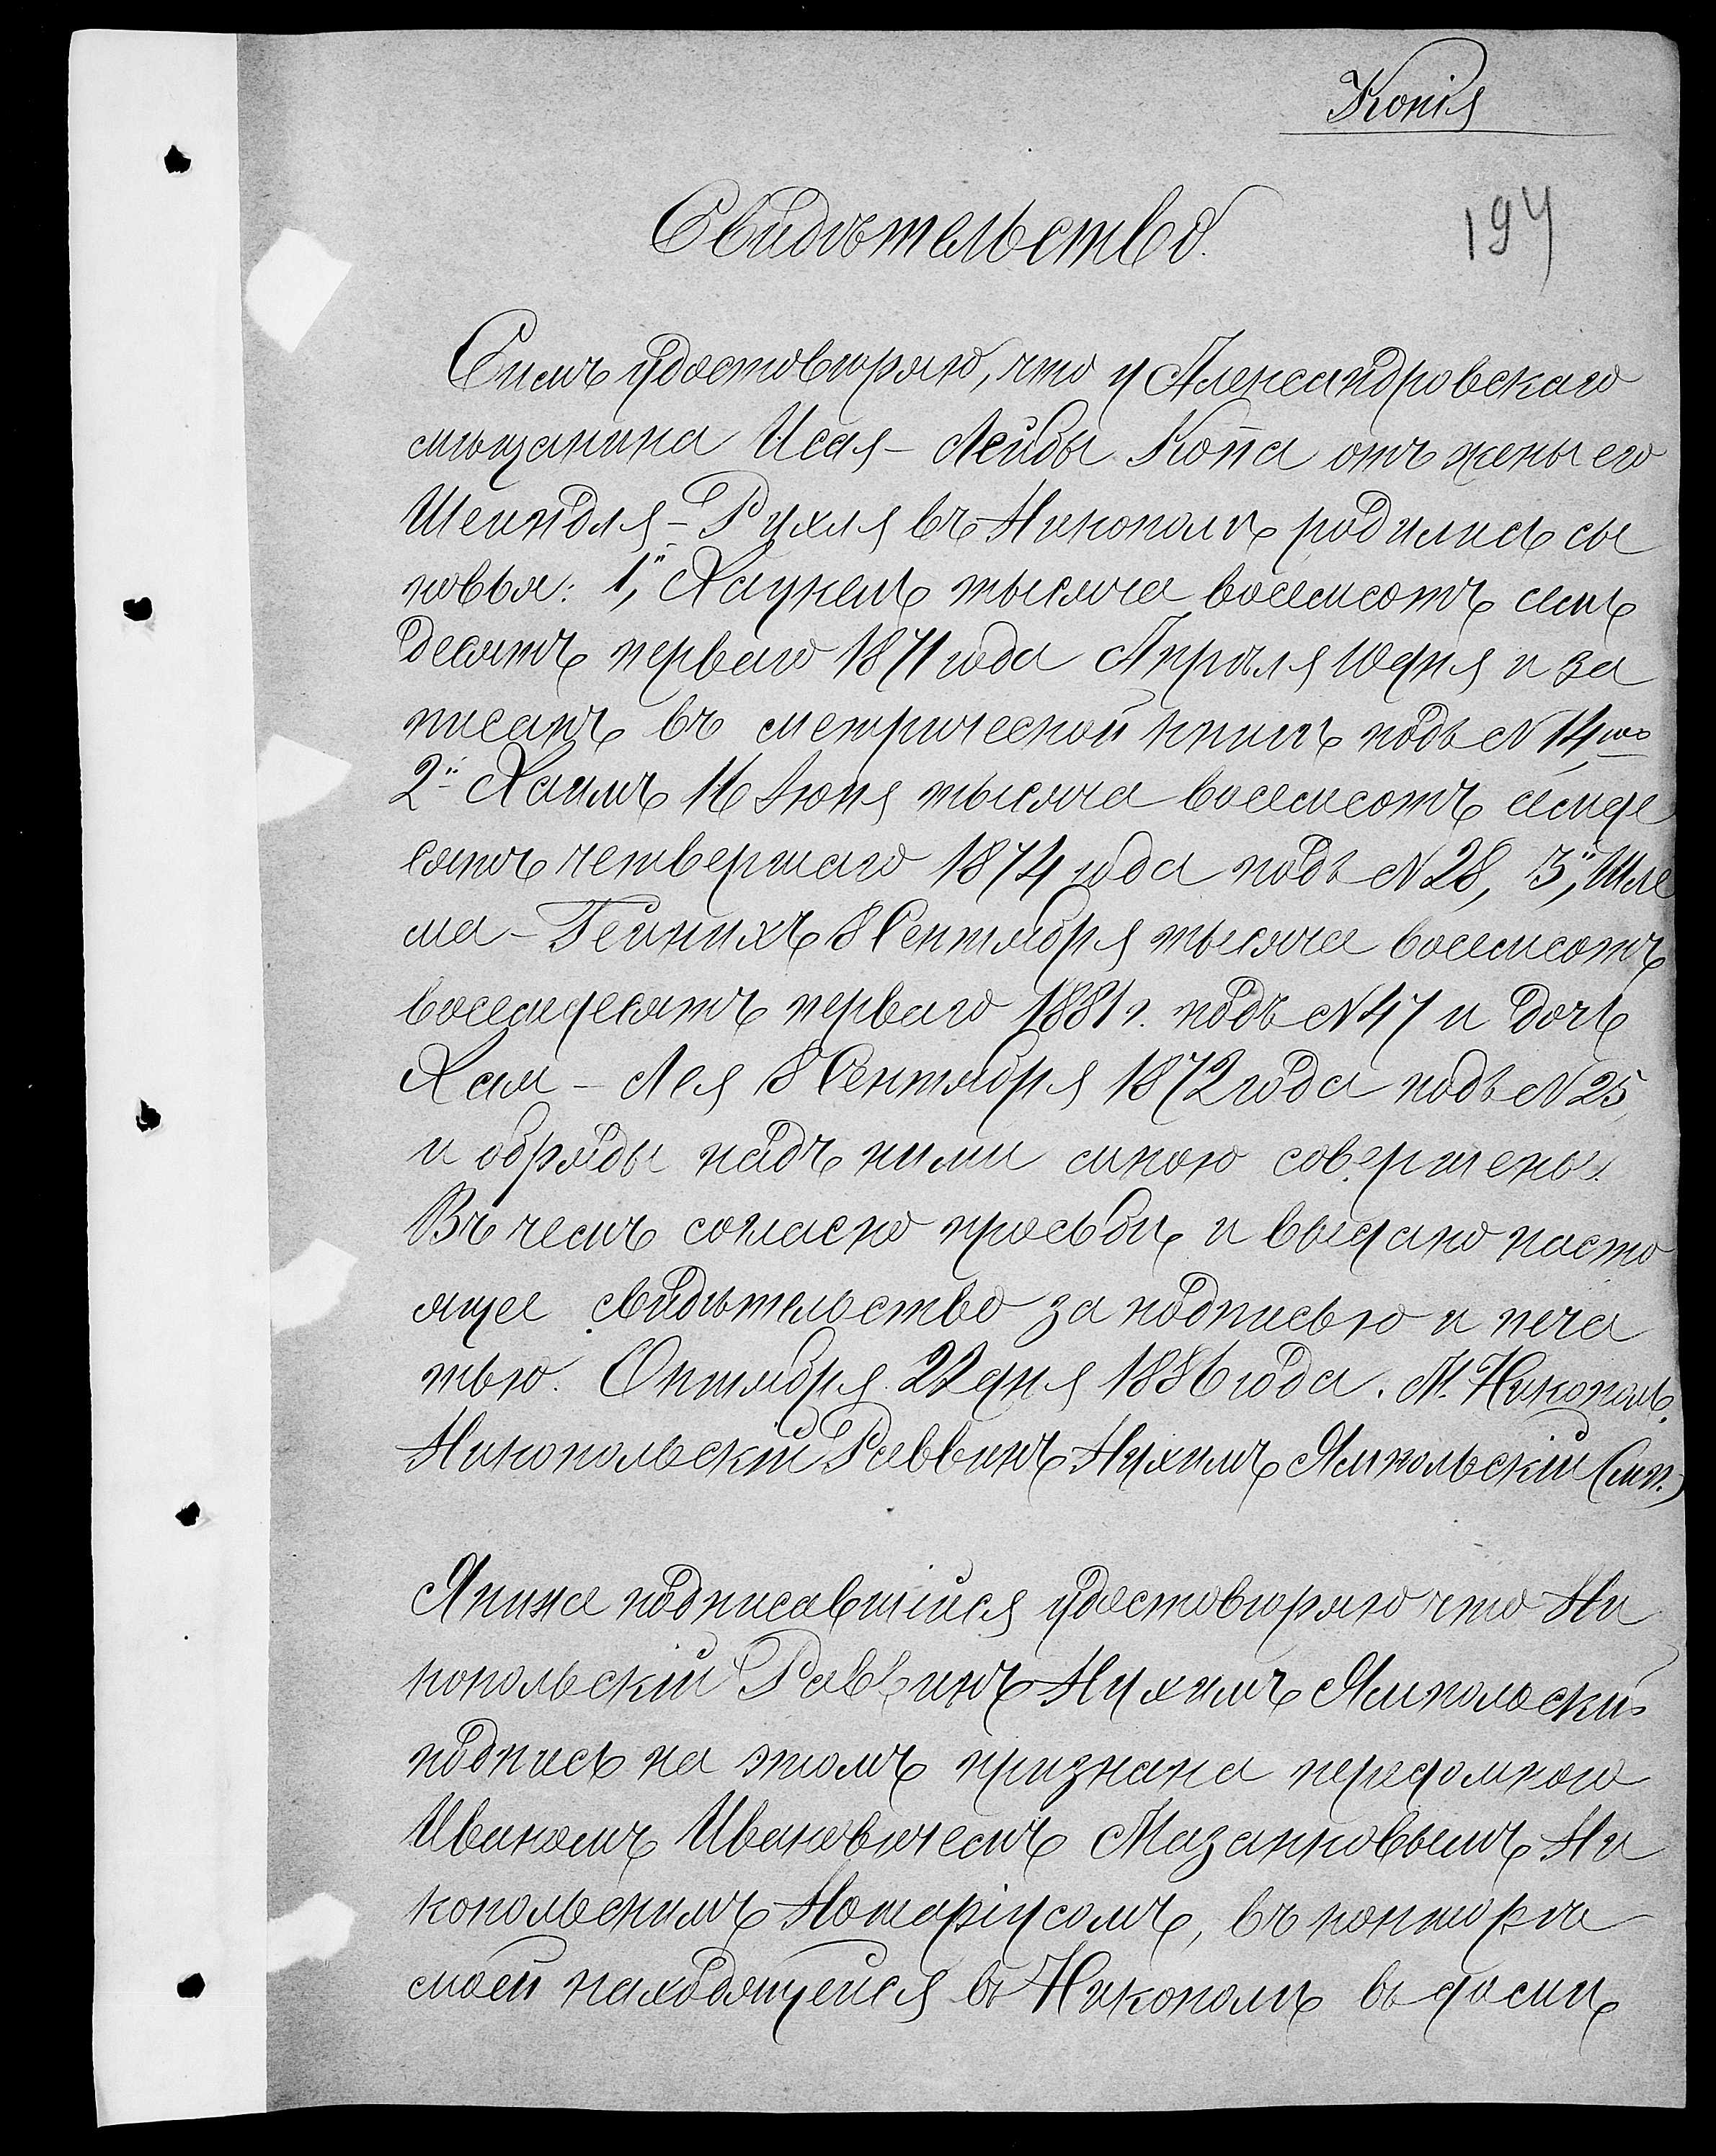 Копія
194
Свидѣтельство.
Симъ удостовѣряю, что у Александровскаго
мѣщанина Исая-Лейбы Копа отъ жены его
Шеиндля-Рухля въ Никополѣ родились сы
новья: 1", Хаукель тысяча восемсотъ семь
десятъ перваго 1871 года Апрѣля 10 дня и за
писанъ въ метрической книгѣ подъ № 14мъ
2" Хаимъ 16 Іюня тысяча восемсотъ семде
сятъ четвертаго 1874 года подъ № 28, 3", Шле
ма-Гейнихъ 8 Сентября тысяча восемсотъ
восемдесятъ перваго 1881 г. подъ № 47 и дочь
Хая-Лея 8 Сентября 1872 года подъ № 25
и обряды надъ ними мною совершены.
Въ чемъ согласно просьбы и выдано насто
ящее свидѣтельство за подписью и печа
тью. Октября 22 дня 1886 года. М. Никополь.
Никопольскій Раввинъ Нухимъ Ямпольскій (мп.)
Я ниже подписавшійся удостовѣряю что Ни
копольскій Раввинъ Нухимъ Ямпольскій
подпись на этомъ признана передомною
Иваномъ Ивановичемъ Мазанковымъ Ни
копольскимъ Нотаріусомъ, въ конторѣ
моей находящейся въ Никополѣ въ домѣ